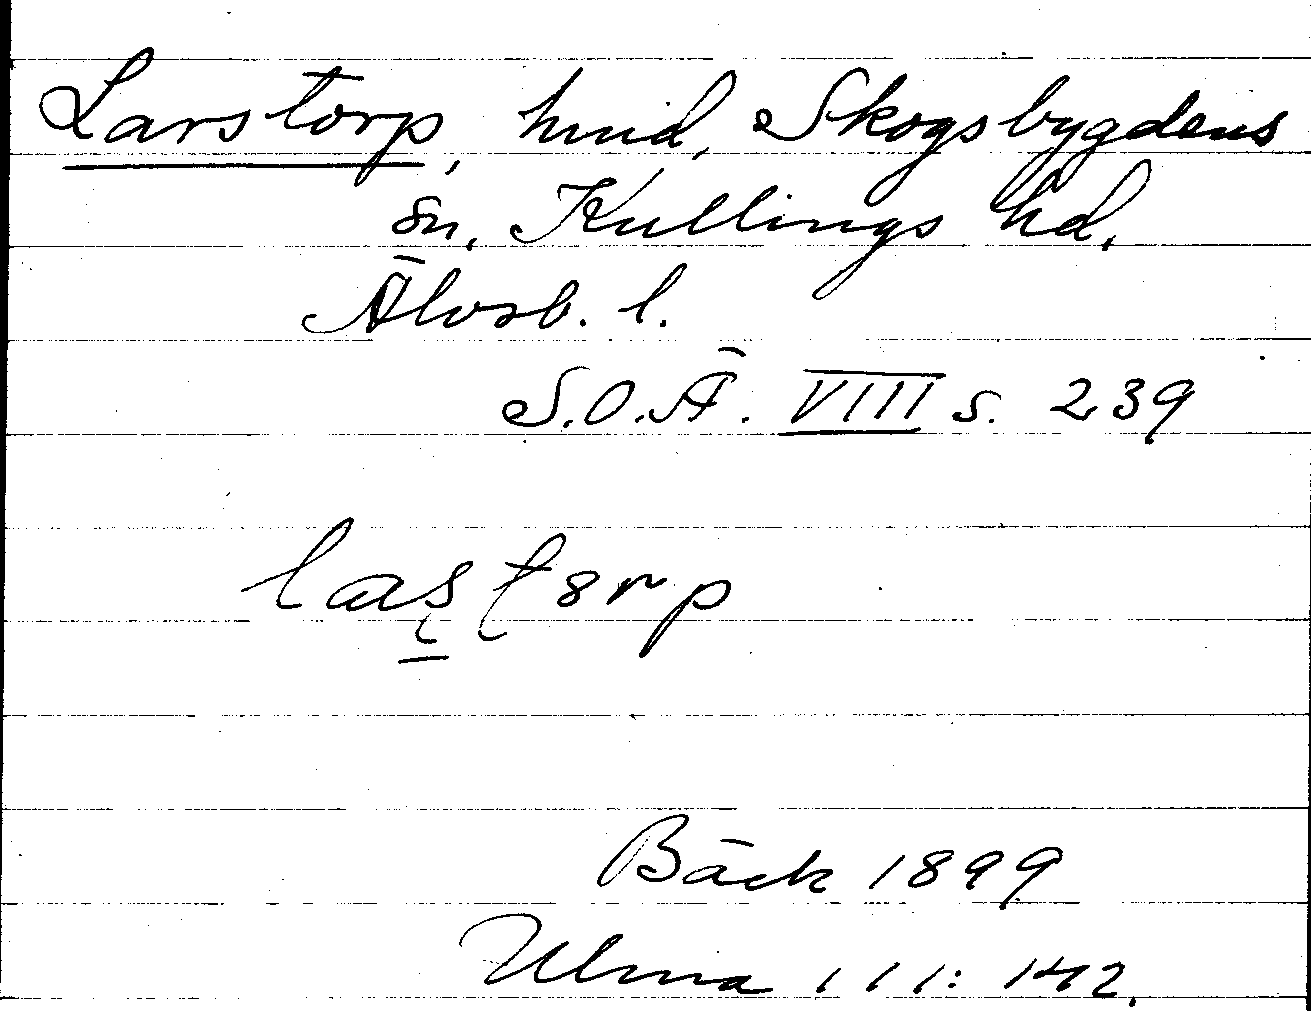 Larstorp, hmd, Skogsbygdens
sn, Kullings hd,
Älvsb. l.
S.O.Ä. VIII s. 239
Bäck 1899
Ulma 111: 142.